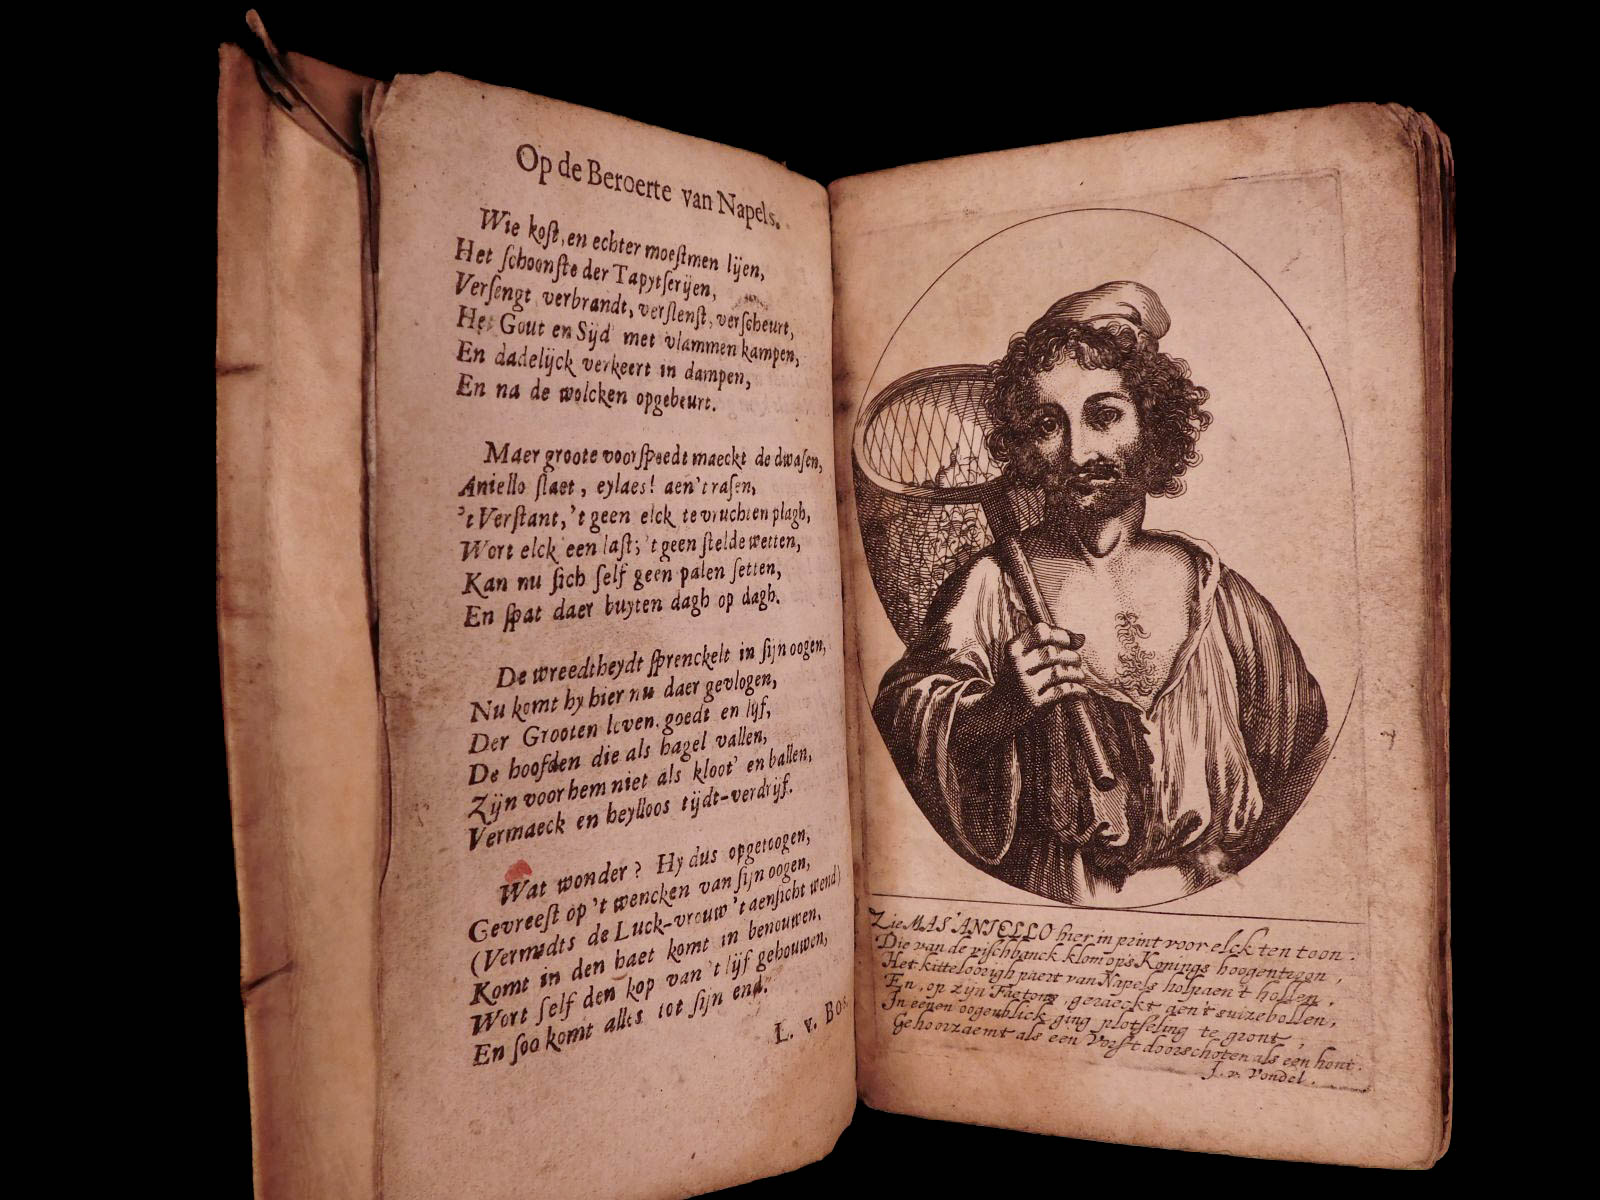 Op de Beroerte van Napels.
Wie koſt, en echter moeſtmen lijen,
Het ſchoonſte der Tapytſerijen,
Verſengt verbrandt, verſlenſt, verſcheurt,
Het Gout en Sijd met vlammen kampen,
En dadelijck verkeert in dampen,
En na de wolcken opgebeurt.
Maer groote voorſpoedt maeckt de dwaſen,
Aniello ſlaet, eylaes! aen't raſen,
't Verſtant, 't geen elck te vruchten plagh,
Wort elck een laſt; 't geen ſtelde wetten,
Kan nu ſich ſelf geen palen ſetten,
En ſpat daer buyten dagh op dagh.
De wreedtheydt ſprenckelt in ſijn oogen,
Nu komt hy hier nu daer gevlogen,
Der Grooten leven, goedt en lijf,
De hoofden die als hagel vallen,
Zijn voor hem niet als kloot' en ballen,
Vermaeck en heylloos tijdt-verdrijf.
Wat wonder? Hy dus opgetoogen,
Gevreeſt op 't wencken van ſijn oogen,
(Vermidts de Luck-vrouw 't aenſicht wend)
Komt in den haet komt in benouwen,
Wort ſelf den kop van 't lijf gehouwen,
En ſoo komt alles tot ſijn end.
L. v. Bos.
Zie MAS' ANIELLO hier in print voor elck ten toon.
Die van de viſchbanck klom op's Konings hoogen troon,
Het kitteloorigh paert van Napels holpaen't hollen,
En, op zijn Faetons, geraeckt aen't suizebollen,
In eenen oogenblick ging plotſeling te gront,
Gehoorzaemt als een Vorſt doorschoten als een hont.
J. v. Vondel.